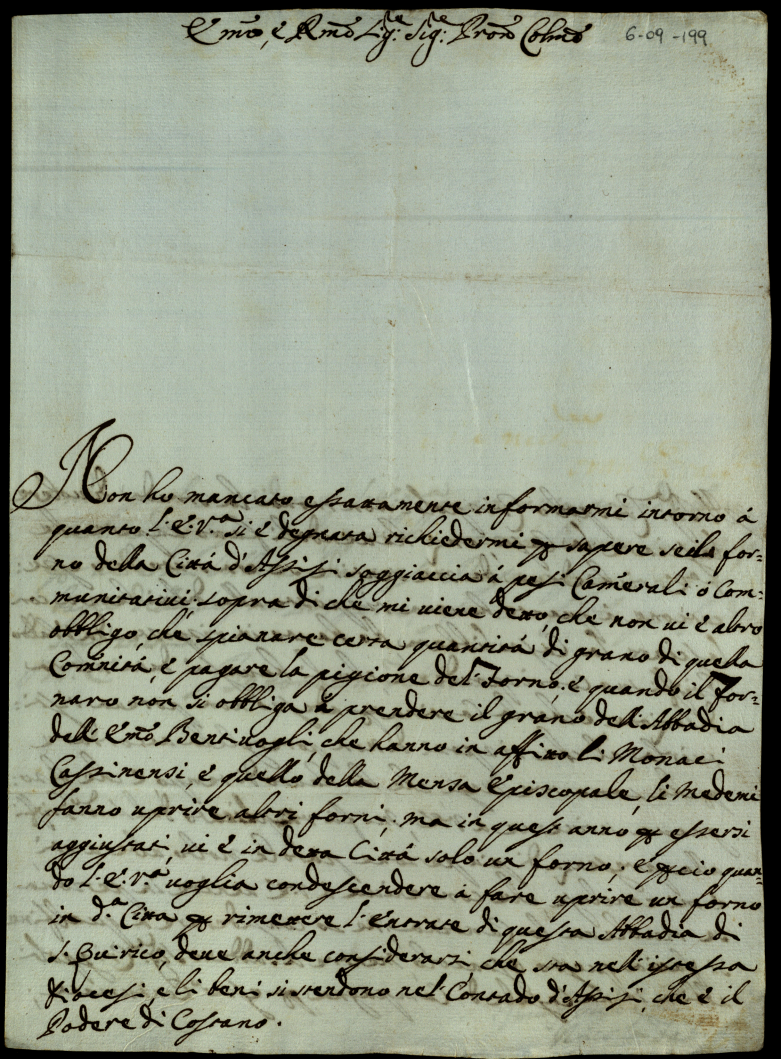 Em̃o, è Rm̃o Sig:re Sig:re Pron̄e Colm̃o 6-09-199
Non ho mancato essattamente informarmi intorno à
quanto l'E.V.ra si è degnata richiedermi p sapere se il for=
no della Città d'Assisi soggiaccia à pesi Camerali ò Com=
munitativi, sopra di che mi viene detto, che non vi è altro
obbligo, che spianare certa quantità di grano di quella
Com̃nità, è pagare la pigione del Forno, è quando il For=
naro non si obbliga à prendere il grano dell'Abbadia
dell'Em̃o Bentivogli, che hanno in affitto li Monaci
Cassinensi, è quello della Mensa Episcopale, li Medemi
fanno uprire altri forni, ma in quest'anno p essersi
aggiustati vi è in detta Città solo un forno; è pciò quan=
do l'E.V.ra voglia condescendere à fare uprire un forno
in d.a Città p rimettere l'Entrate di questa Abbadia di
S. Quirico, deve anche considerarsi, che sta nell'istessa
Diocesi, è li beni si stendono nel Contado d'Assisi, che è il
Podere di Costano.